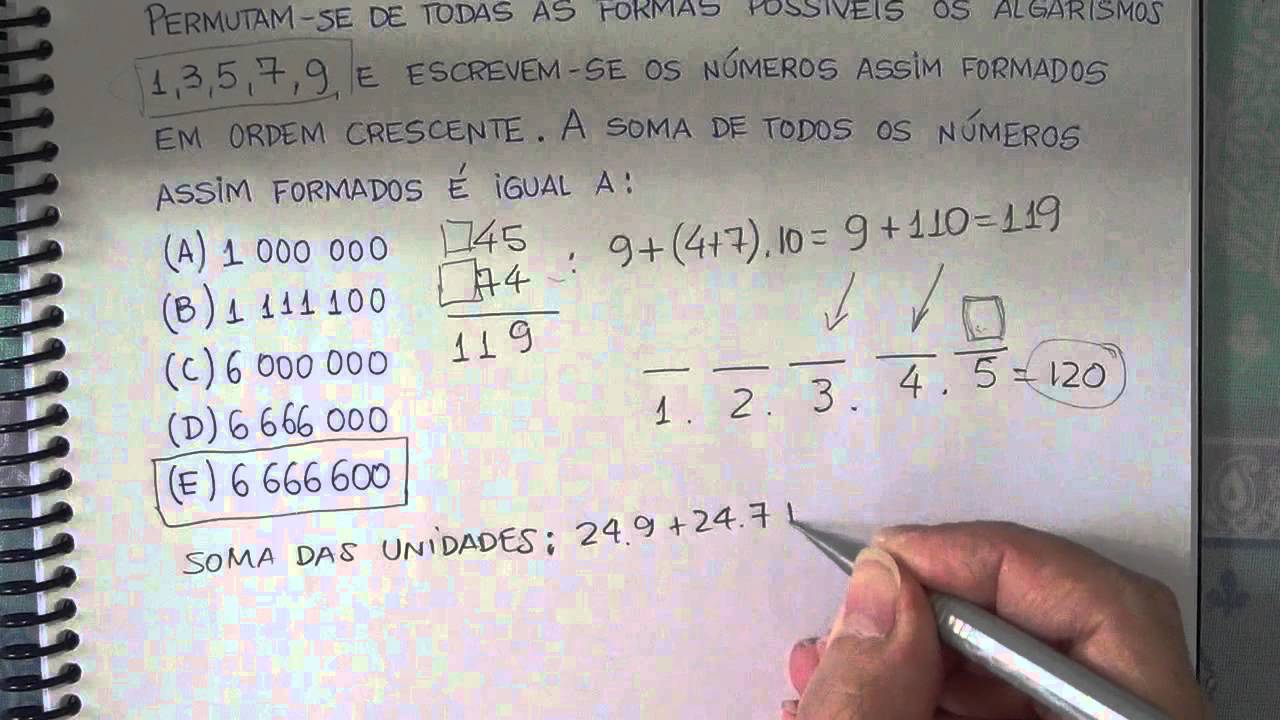 PERMUTAM-SE DE TODAS AS FORMAS POSSÍVEIS OS ALGARISMOS
1,3,5,7,9, E ESCREVEM-SE OS NÚMEROS ASSIM FORMADOS
EM ORDEM CRESCENTE. A SOMA DE TODOS OS NÚMEROS
ASSIM FORMADOS É IGUAL A:
(A) 1 000 000
(B) 1 111 100
(C) 6 000 000
(D) 6 666 000
(E) 6 666 600
□45
□74
119
: 9+(4+7).10= 9+110=119
1. 2. 3. 4. 5 = 120
SOMA DAS UNIDADES: 24.9+24.7